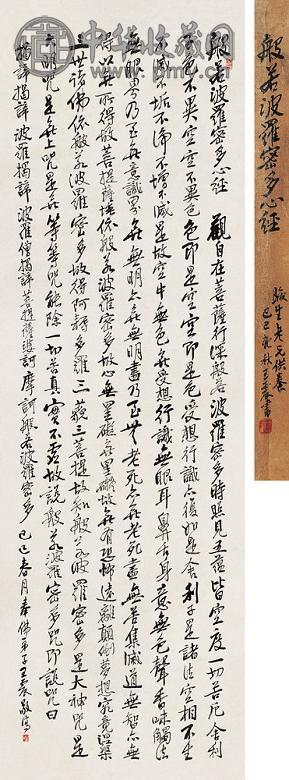 般若波羅密多心經 觀自在菩薩行深般若波羅密多時照見五蘊皆空度一切苦厄舍利
色不異空空不異色色即是空空即是色受想行識亦復如是舍利子是諸法空相不生
不滅不垢不淨不增不減是故空中無色無受想行識無眼耳鼻舌身意無色聲香味觸法
無眼界乃至無意識界無無明亦無無明盡乃至無老死亦無老死盡無苦集滅道無智亦無
得以無所得故菩提薩埵依般若波羅密多故心無罣礙無罣礙故無有恐怖遠離顛倒夢想究竟涅槃
三世諸佛依般若波羅密多故得阿耨多羅三藐三菩提故知般若波羅密多是大神咒是
大明咒是無上咒是無等等咒能除一切苦真實不虛故說般若波羅密多咒即說咒曰
揭諦揭諦 波羅揭諦 波羅僧揭諦 菩提薩婆訶 摩訶般若波羅密多 己巳春月奉佛弟子王震敬寫
般若波羅密多心經
老兄供養
己巳 秋王震書
中华收藏网